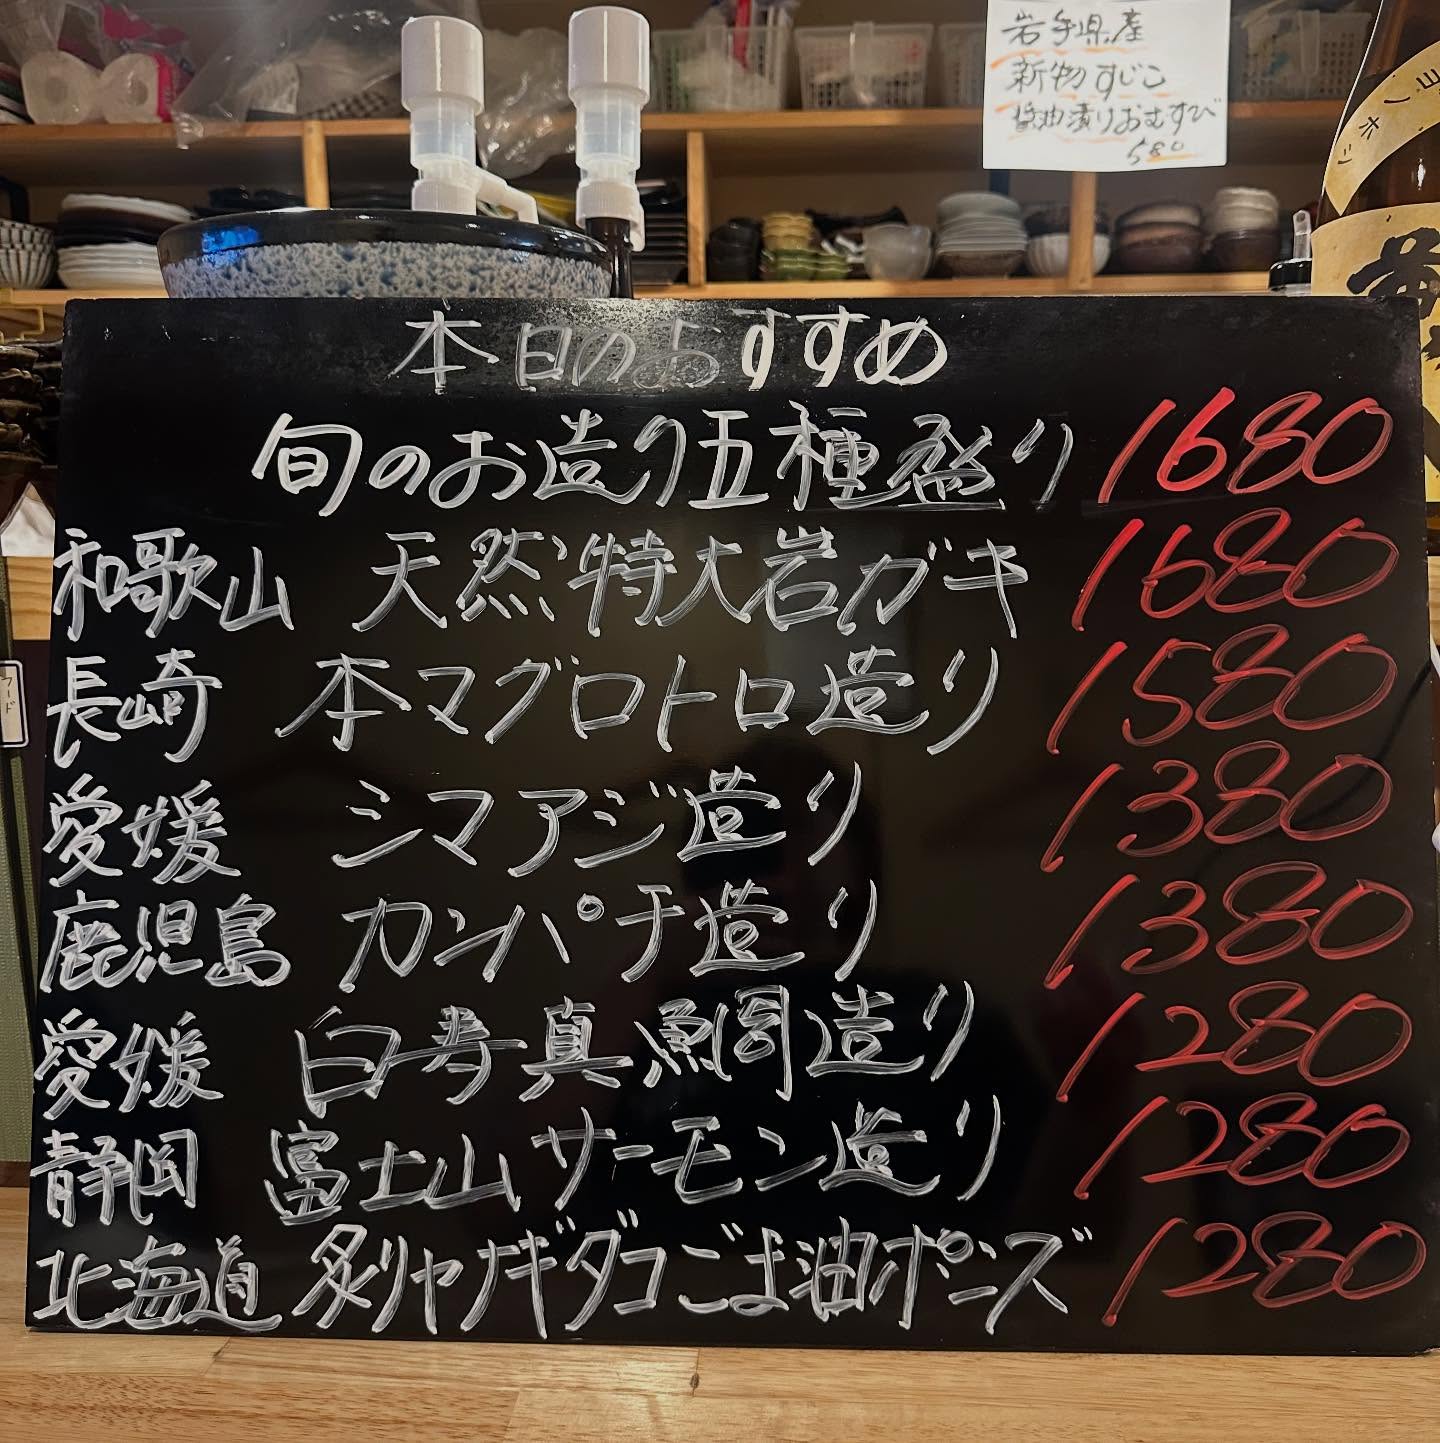 岩手県産
新物すじこ
醤油漬けおむすび
580
ヨノホシ
フード
本日のおすすめ
旬のお造り五種盛り 1680
和歌山 天然特大岩ガキ 1680
長崎 本マグロトロ造り 1580
愛媛 シマアジ造り 1380
鹿児島 カンパチ造り 1380
愛媛 白寿真鯛造り 1280
静岡 富士山サーモン造り 1280
北海道 炙りヤナギダコごま油ポン酢 1280